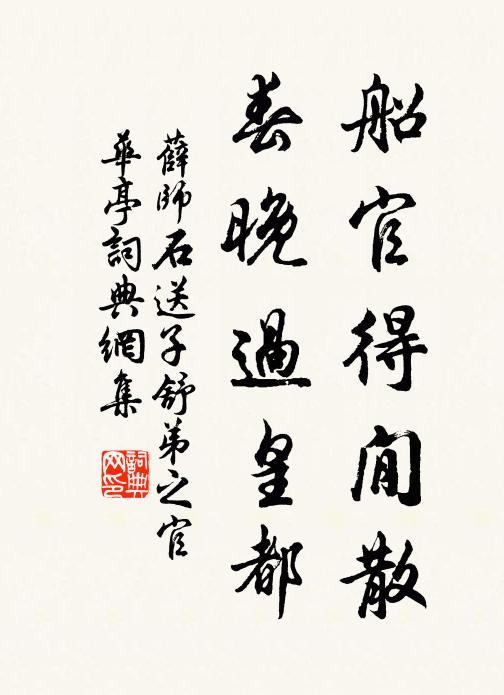 船官得閒散
春晚過皇都
薛師石送子舒弟之官
華亭詞典網集
詞典网印